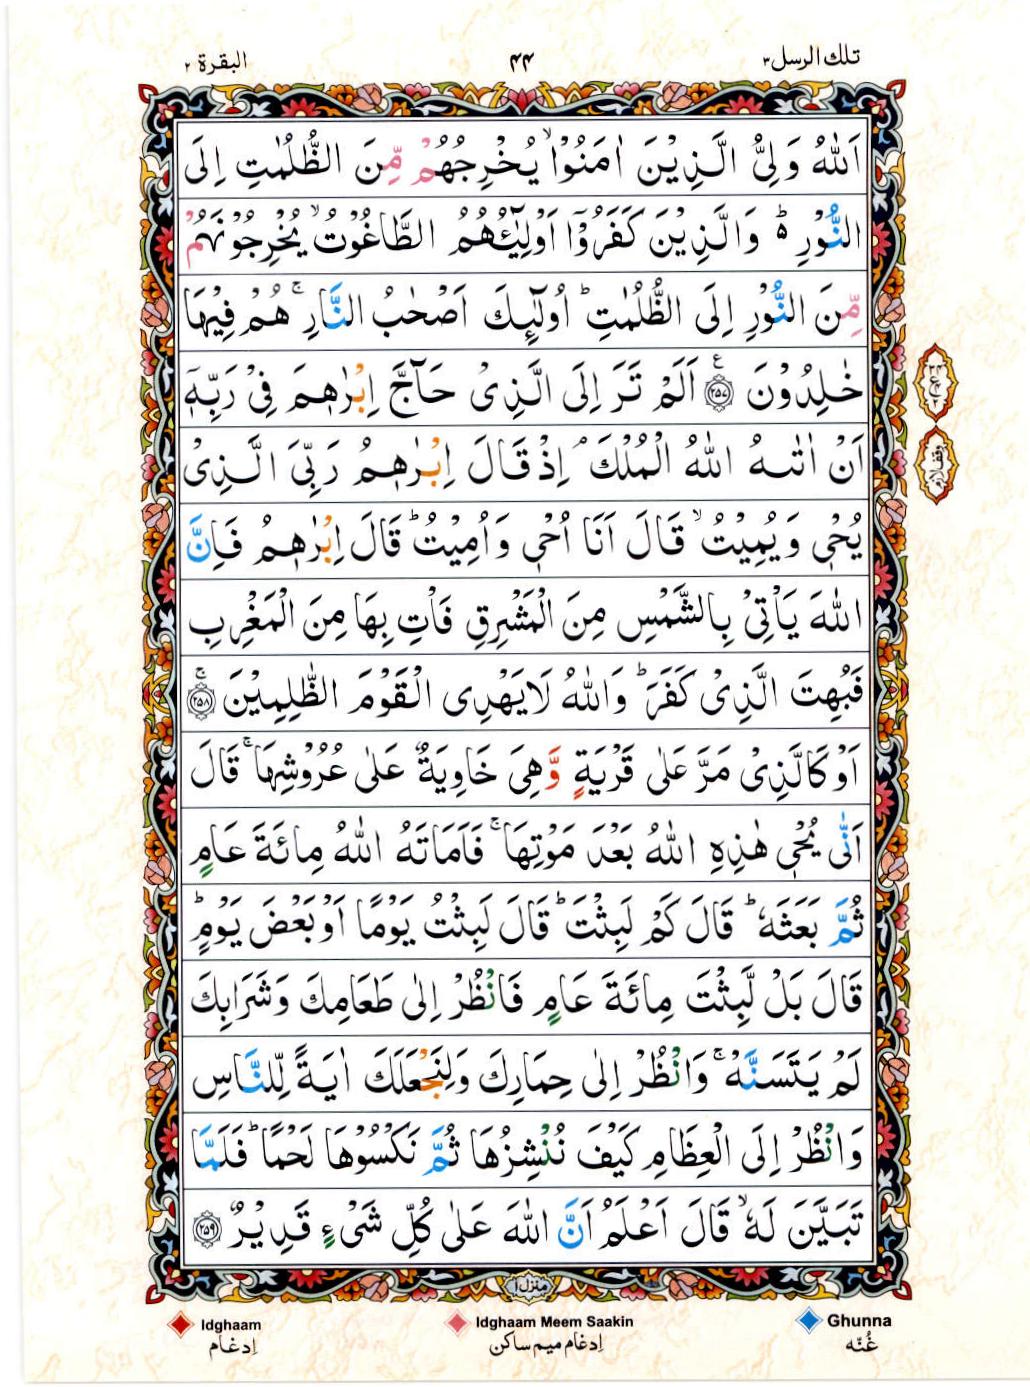 تلك الرسل ٣
٤٤
البقرة ٢
اَللّٰهُ وَلِىُّ الَّذِيْنَ اٰمَنُوْا ۙ يُخْرِجُهُمْ مِّنَ الظُّلُمٰتِ اِلَى
النُّوْرِ ۬ؕ وَالَّذِيْنَ كَفَرُوْۤا اَوْلِيٰٓئُهُمُ الطَّاغُوْتُ ۙ يُخْرِجُوْنَهُمْ
مِّنَ النُّوْرِ اِلَى الظُّلُمٰتِ ؕ اُولٰٓئِكَ اَصْحٰبُ النَّارِ ۚ هُمْ فِيْهَا
خٰلِدُوْنَ ۧ ﴿٢٥٧﴾ اَلَمْ تَرَ اِلَى الَّذِىْ حَآجَّ اِبْرٰهٖمَ فِىْ رَبِّهٖۤ
اَنْ اٰتٰىهُ اللّٰهُ الْمُلْكَ ۘ اِذْ قَالَ اِبْرٰهٖمُ رَبِّىَ الَّذِىْ
يُحْىٖ وَيُمِيْتُ ۙ قَالَ اَنَا اُحْىٖ وَاُمِيْتُ ؕ قَالَ اِبْرٰهٖمُ فَاِنَّ
اللّٰهَ يَاْتِىْ بِالشَّمْسِ مِنَ الْمَشْرِقِ فَاْتِ بِهَا مِنَ الْمَغْرِبِ
فَبُهِتَ الَّذِىْ كَفَرَ ؕ وَاللّٰهُ لَا يَهْدِى الْقَوْمَ الظّٰلِمِيْنَ ۚ ﴿٢٥٨﴾
اَوْ كَالَّذِىْ مَرَّ عَلٰى قَرْيَةٍ وَّهِىَ خَاوِيَةٌ عَلٰى عُرُوْشِهَا ۚ قَالَ
اَنّٰى يُحْىٖ هٰذِهِ اللّٰهُ بَعْدَ مَوْتِهَا ۚ فَاَمَاتَهُ اللّٰهُ مِائَةَ عَامٍ
ثُمَّ بَعَثَهٗ ؕ قَالَ كَمْ لَبِثْتَ ؕ قَالَ لَبِثْتُ يَوْمًا اَوْ بَعْضَ يَوْمٍ ؕ
قَالَ بَلْ لَّبِثْتَ مِائَةَ عَامٍ فَانْظُرْ اِلٰى طَعَامِكَ وَشَرَابِكَ
لَمْ يَتَسَنَّهْ ۚ وَانْظُرْ اِلٰى حِمَارِكَ وَلِنَجْعَلَكَ اٰيَةً لِّلنَّاسِ
وَانْظُرْ اِلَى الْعِظَامِ كَيْفَ نُنْشِزُهَا ثُمَّ نَكْسُوْهَا لَحْمًا ؕ فَلَمَّا
تَبَيَّنَ لَهٗ ۙ قَالَ اَعْلَمُ اَنَّ اللّٰهَ عَلٰى كُلِّ شَىْءٍ قَدِيْرٌ ﴿٢٥٩﴾
وقف لازم
منزل ١
Ghunna
غُنّه
Idghaam Meem Saakin
اِدغام میم ساکن
Idghaam
اِدغام